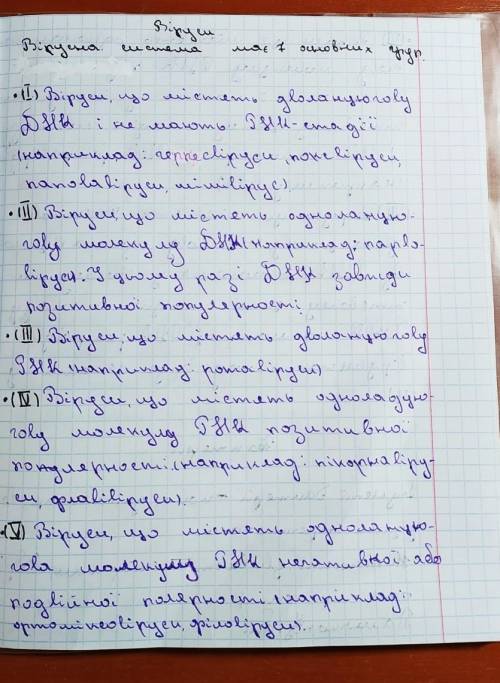 Віруси
Вірусна система має 7 основних груп.
•(I) Віруси, що містять дволанцюгову
ДНК і не мають РНК-стадії
(наприклад: герпесвіруси, поксвіруси,
паповавіруси, мімівірус).
•(II) Віруси, що містять одноланцю-
гову молекулу ДНК (наприклад: парво-
віруси). У цьому разі ДНК завжди
позитивної популярності.
•(III) Віруси, що містять дволанцюгову
РНК (наприклад: ротавіруси)
•(IV) Віруси, що містять одноладцю-
гову молекулу РНК позитивної
популярності (наприклад: пікорнавіру-
си, флавівіруси).
•(V) Віруси, що містять одноланцю-
гова молекулу РНК негативної або
подвійної полярності (наприклад:
ортоміксовіруси, філовіруси).